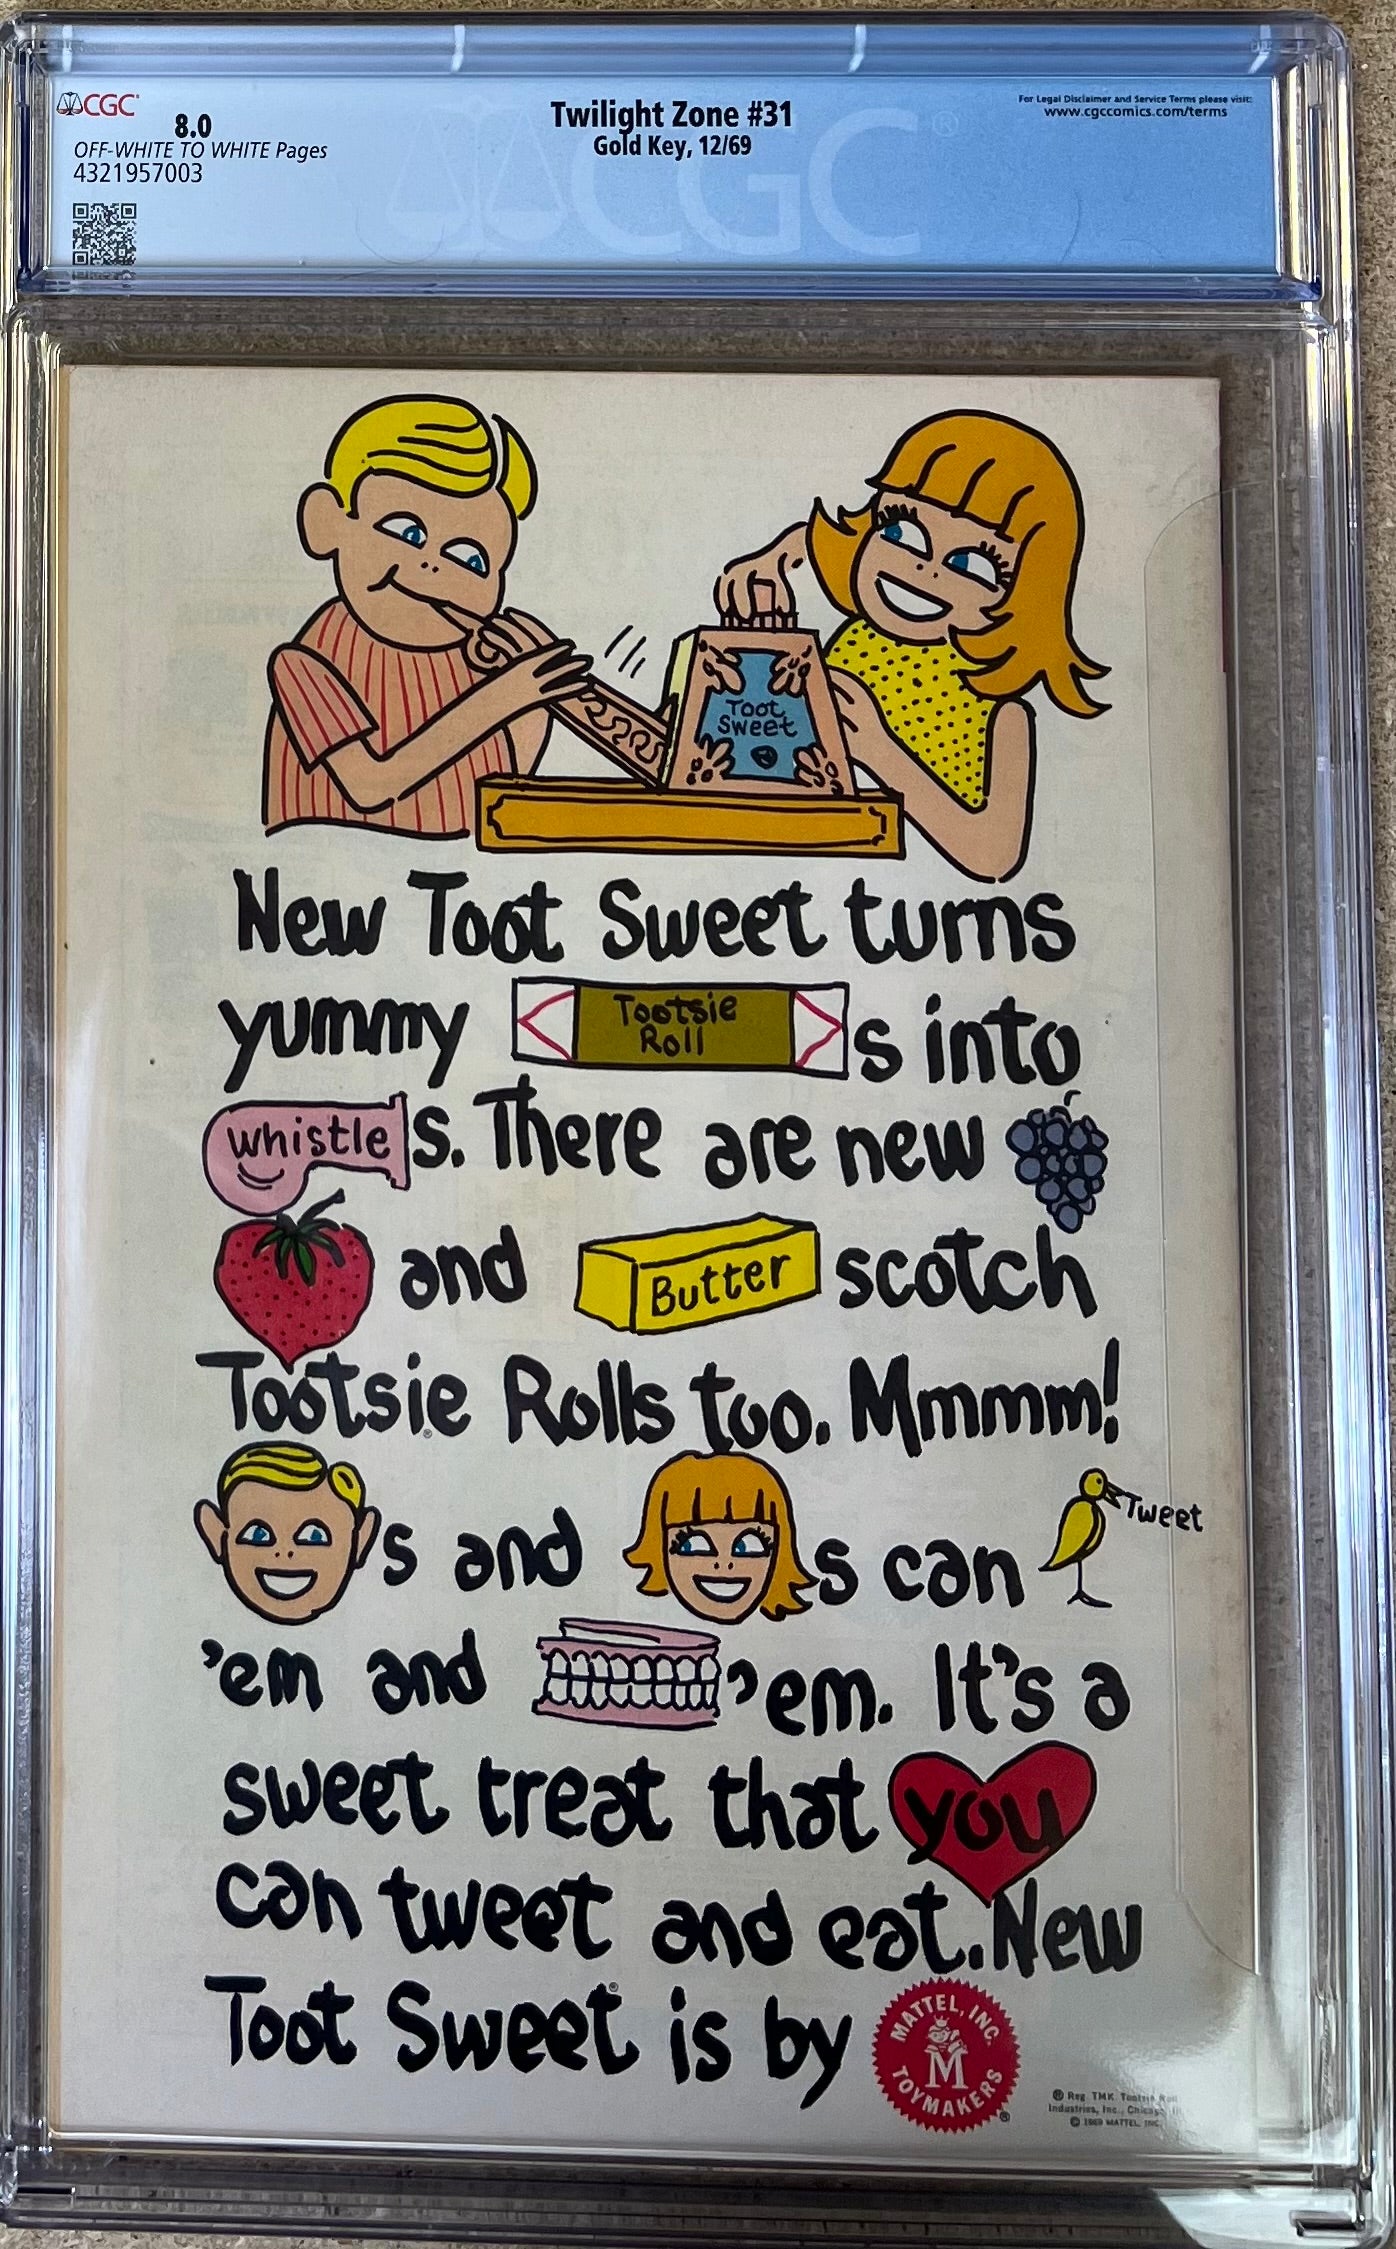 CGC
8.0
OFF-WHITE TO WHITE Pages
4321957003
Twilight Zone #31
Gold Key, 12/69
For Legal Disclaimer and Service Terms please visit:
www.cgccomics.com/terms
CGC®
Toot
Sweet
New Toot Sweet turns
yummy Tootsie Roll s into
whistle s. There are new
and Butter scotch
Tootsie® Rolls too. Mmmm!
s and s can Tweet
'em and 'em. It's a
sweet treat that you
can tweet and eat. New
Toot Sweet® is by
MATTEL, INC.
M
TOYMAKERS
®
® Reg. TMK. Tootsie Roll
Industries, Inc., Chicago, Ill
© 1969 MATTEL, INC.